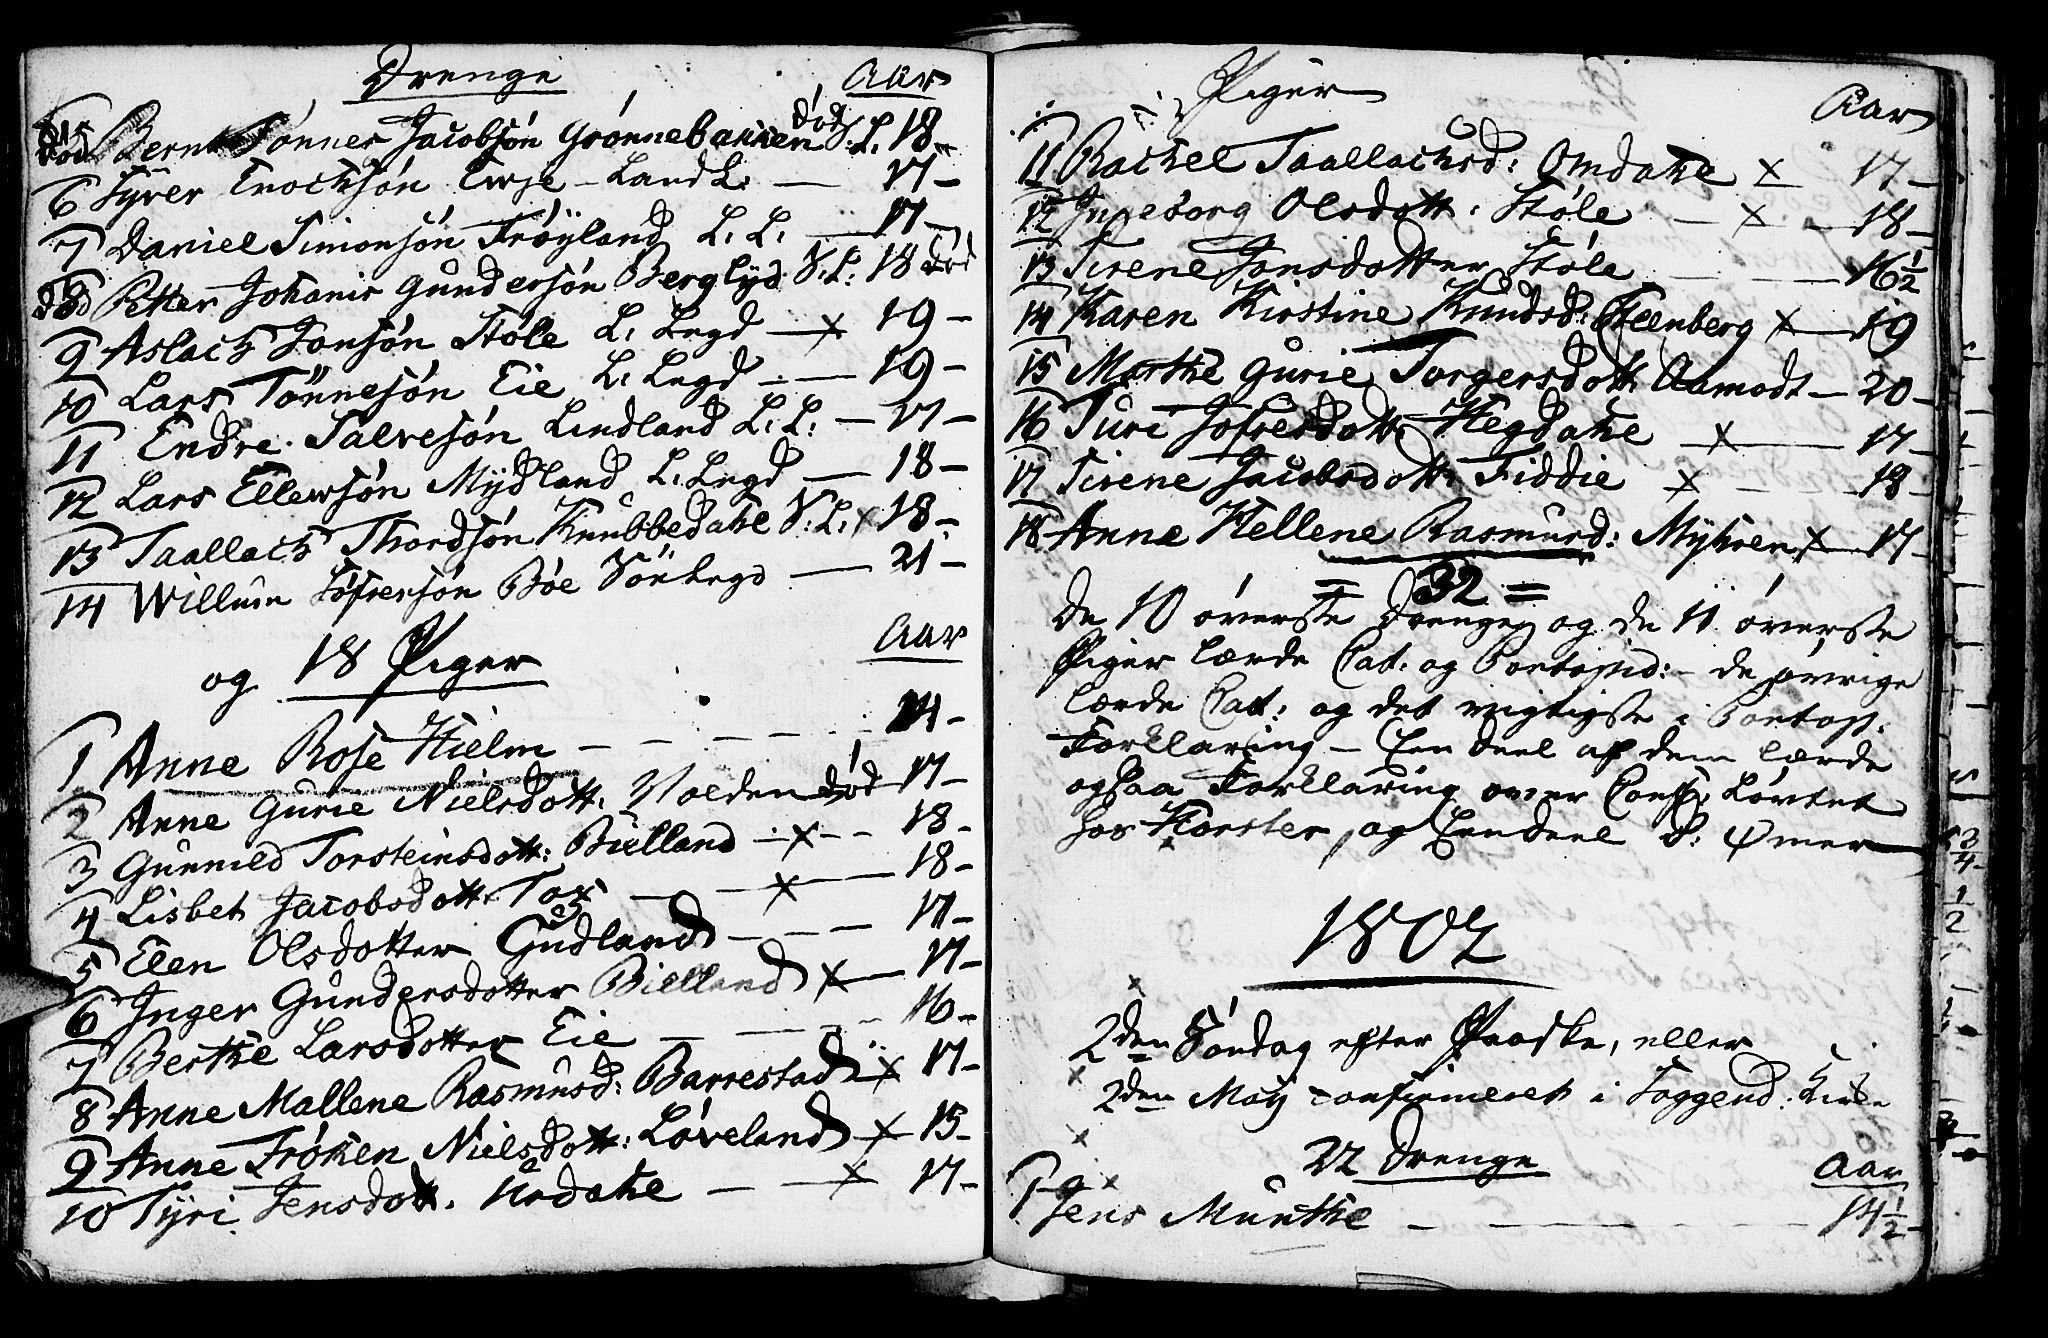 Drenge Aar
død Bernt Tønnes Jacobsøn Grønnebakken død S: L. 18 -
6 Syver Enochsøn Ewje - Land L: — 17 -
7 Daniel Simonsøn Frøyland L: L: — 17 -
død 8 Petter Johanis Gundersøn Berglyd S: L: 18 død
9 Aslach Jonsøn Støle L: Legd — x 19 -
10 Lars Tønnesøn Eie L: Legd — 19 -
11 Endre Salvesøn Lindland L: L: — 17 -
12 Lars Ellewsøn Mydland L: Legd — 18 -
13 Taallach Thordsøn Knubbedahl S: L: x 18 -
14 Willum Søfrensøn Bøe Søe Legd — 21 -
og 18 Piger Aar
1 Anne Rose Hielm - - - - - 14 -
2 Anne Gurie Nielsdott: Volden død 17 -
3 Gunnild Torsteinsdott: Bielland - x - - 18 -
4 Lisbet Jacobsdott: Tox — x — 18 -
5 Elen Olsdotter Gudland - - - - 17 -
6 Inger Gundersdotter Bielland x — 17 -
7 Berthe Larsdotter Eie — - - - 16 -
8 Anne Mallene Rasmusd: Barrestad x 17 -
9 Anne Frøken Nielsdott: Løveland x 15 -
10 Tyri Jensdott. Urdahl — - x 17 -
Piger Aar
11 Rachel Taallachsd: Omdahl x 17 -
12 Ingeborg Olsdott: Støle - x - 18 -
13 Sirene Jonsdotter Støle - - — 16 1/2
14 Karen Kirstine Knudsd: Steenberg x — 19
15 Marthe Gurie Torgersdott: Aamodt — 20 -
16 Siri Søfresdott: Hegdahl - x — 17 -
17 Sirene Jacobsdott: Fiddie x - - 18 -
18 Anne Hellene Rasmusd: Myhren x — 17 -
= 32 =
De 10 øverste Drenge og de 11 øverste
Piger lærde Cat: og Pontopid: - de øvrige
lærde Cat: og det vigtigste i Pontop:
Forklaring - Een deel af dem lærde
ogsaa Forklaring over
hos Horster, og Eendeel
1802
2den Søndag efter Paaske, eller
2den Maij confirmeret i Soggend: Kirke
22 Drenge Aar
1 Jens Munthe - - - - 14 1/2 -